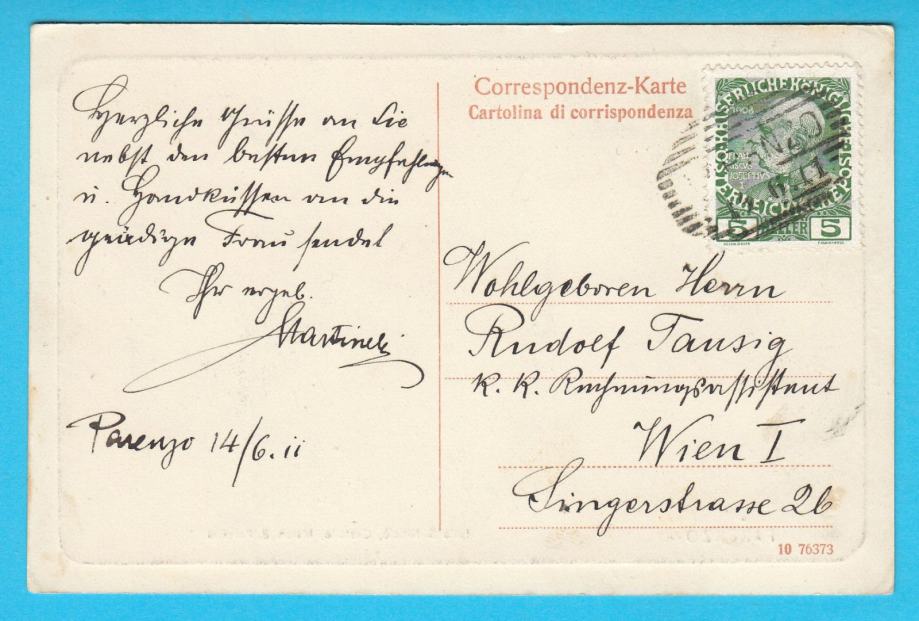 Herzliche Grüsse an Sie
nebst den besten Empfehlungen
u. Handküssen an die
gnädige Frau sendet
Ihr ergeb.
Martinelli
Parenzo 14/6.11
Correspondenz-Karte
Cartolina di corrispondenza
KAISERLICHE KÖNIGLICHE
ÖSTERREICHISCHE
1908
5 HELLER 5
NZO
11
Wohlgeboren Herrn
Rudolf Tausig
K. K. Rechnungsassistent
Wien I
Singerstrasse 26
10 76373